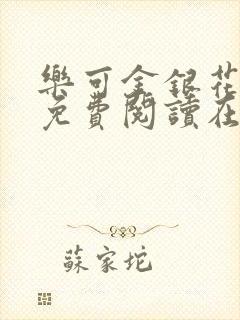 樂可金銀花
免費閱讀在
蘇家坨